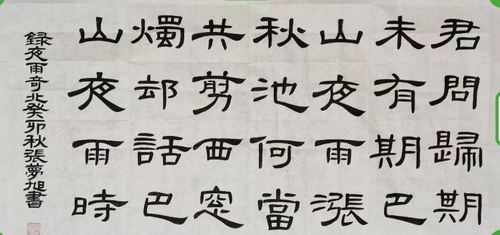 君問歸期
未有期巴
山夜雨漲
秋池何當
共剪西窓
燭却話巴
山夜雨時
録夜雨寄北癸卯秋張夢旭書